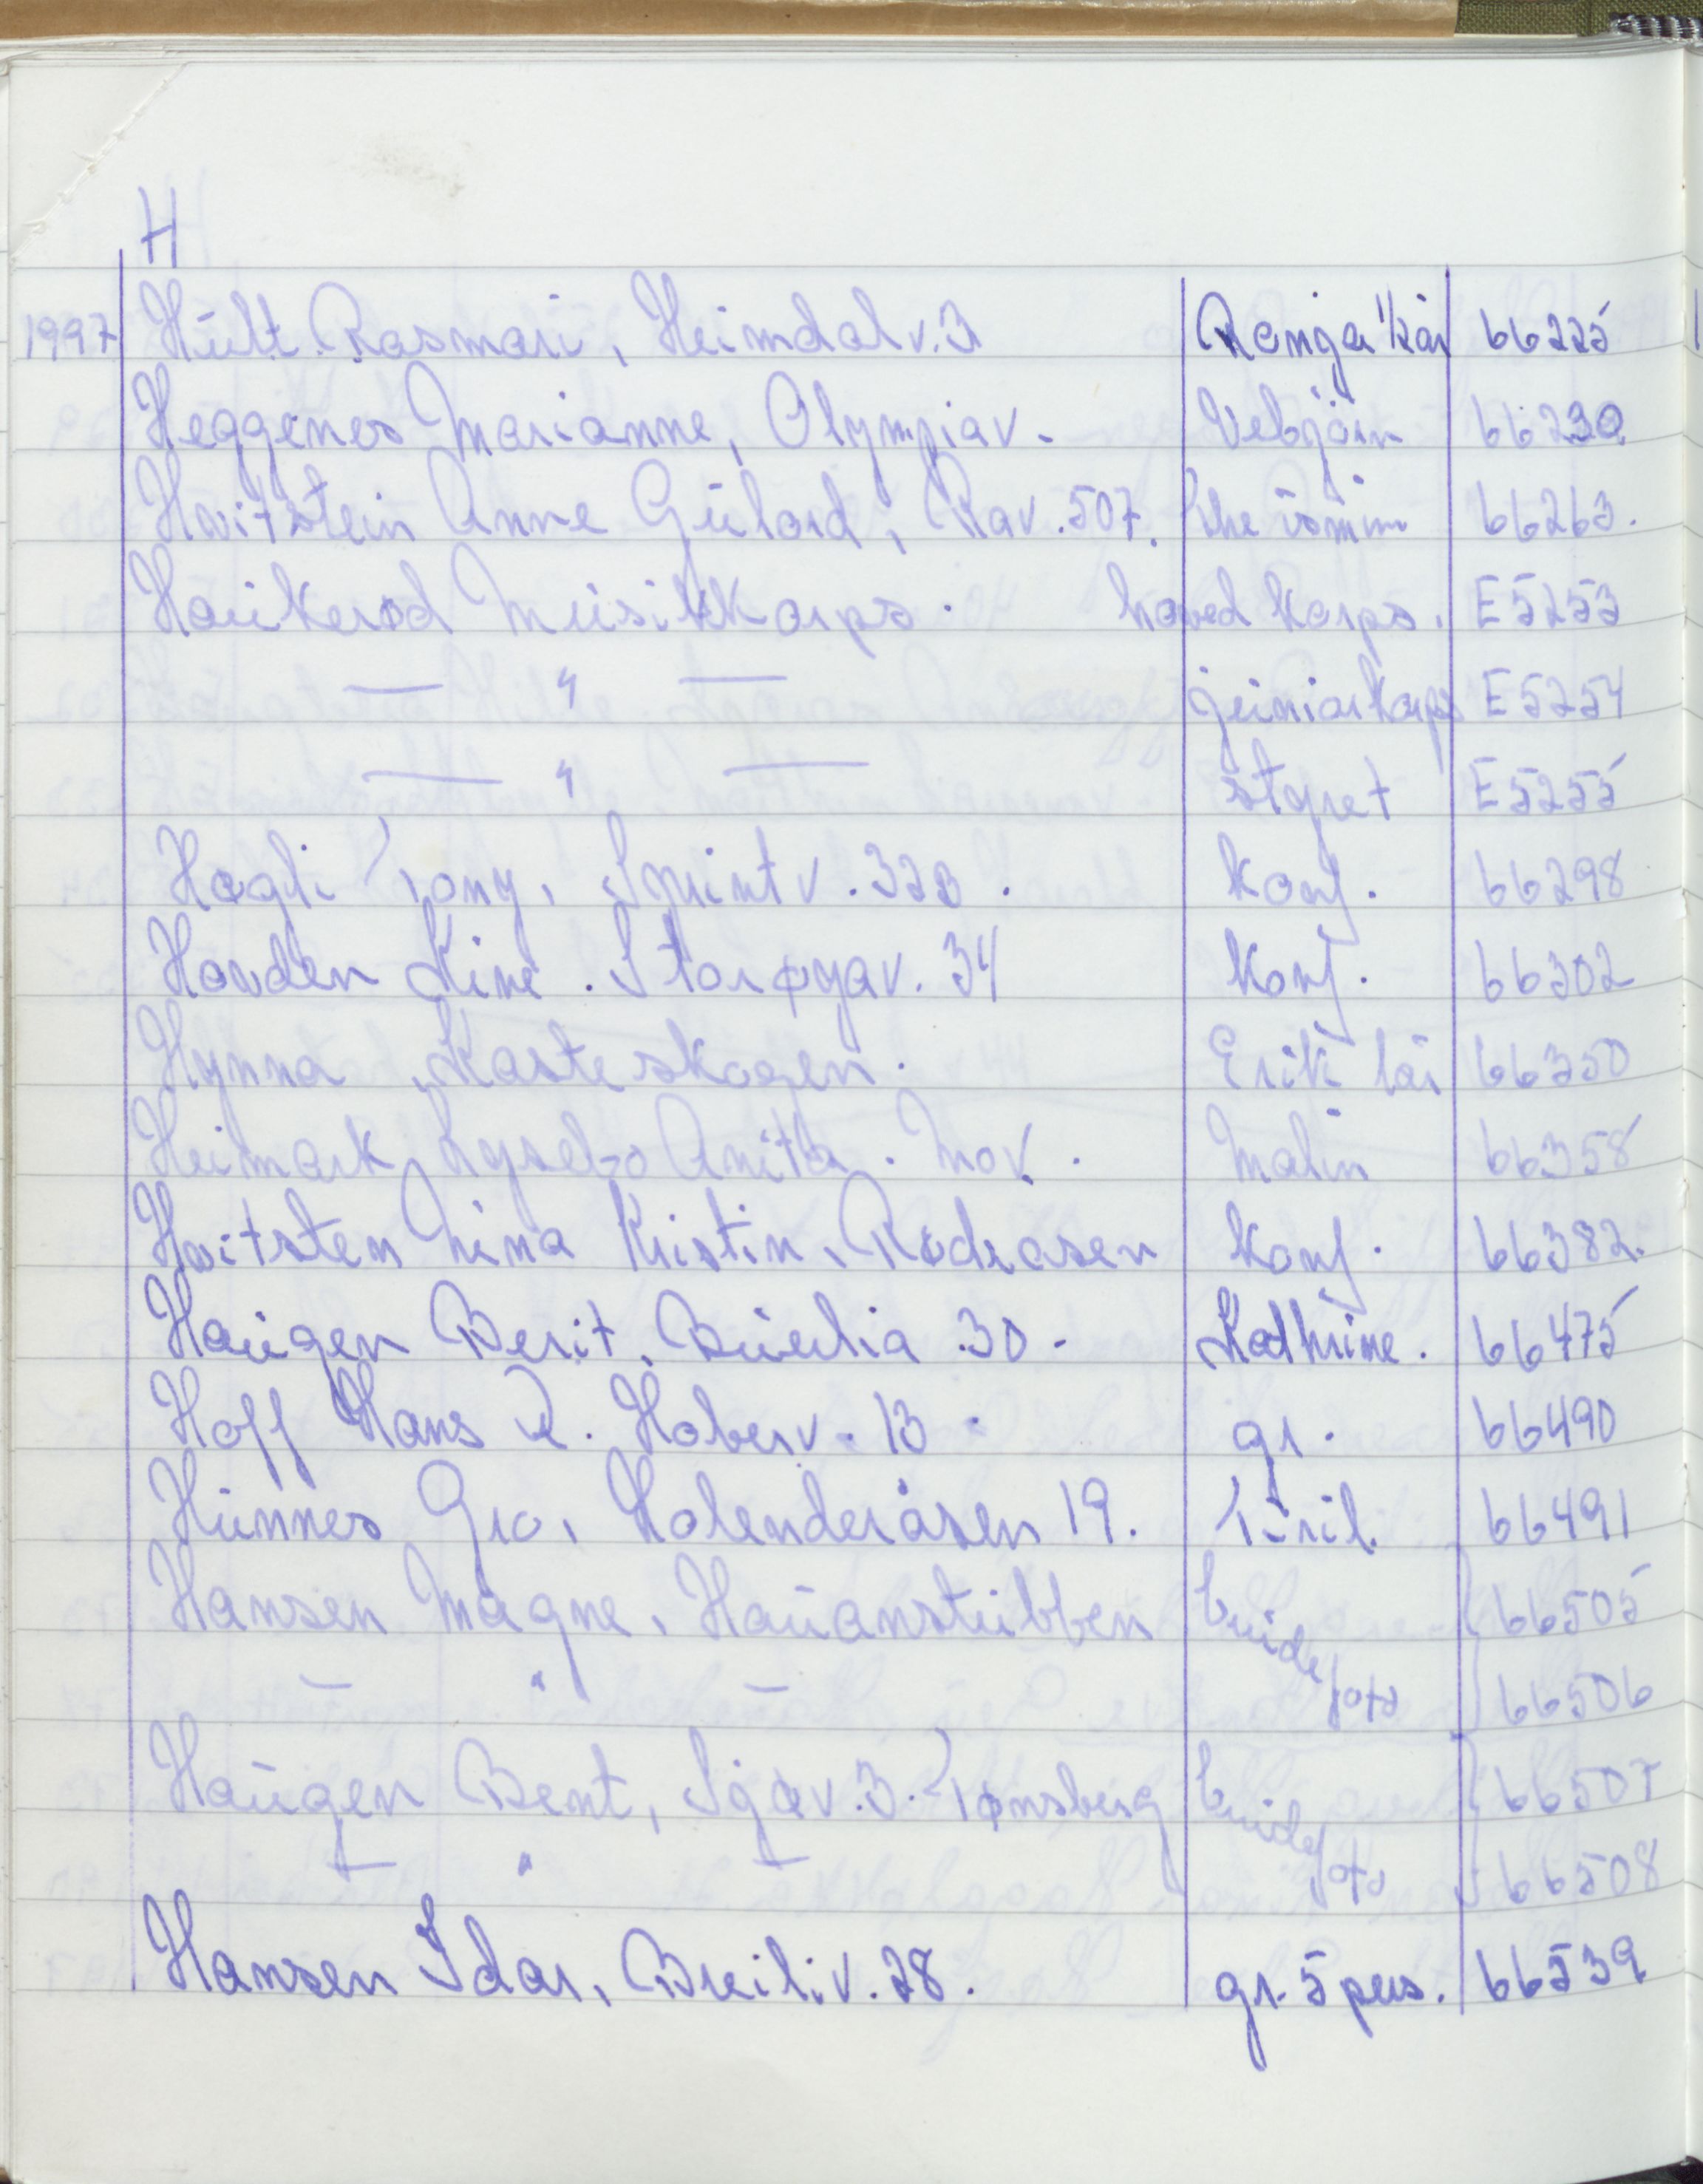 H
1997 Hült Rosmari, Heimdal v. 3 Ronja 1/2 år 66225
Heggenes Marianne, Olympiav. Vebjörn 66230
Hvitstein Anne Gülord, Rav. 507. 66263.
Haukerød Musikkorps. hoved korps. E5253
— " — juniorkorps E5254
— " — styret E5255
Hagli Tony, Sprintv. 32B. Konf. 66298
Hovden Line. Storøyav. 34 Konf. 66302
Hynna, Kasteskogen. Erik 1 år 66350
Heimark Lysebo Anita. Mov. Malin 66358
Hvitsten Nina Kristin, Rødsåsen Konf. 66382.
Haugen Berit, Buerlia 30. Kathrine. 66475
Hoff Hans R. Hobersv. 13. gr. 66490
Hunnes Gro, Kolenderåsen 19. Tiril. 66491
Hansen Magne, Hauanstubben brude foto 66505
— " — 66506
Haugen Bent, Sjøv. 3. Tønsberg brude foto 66507
— " — 66508
Hansen Idar, Breiliv. 28. gr. 5 pers. 66539